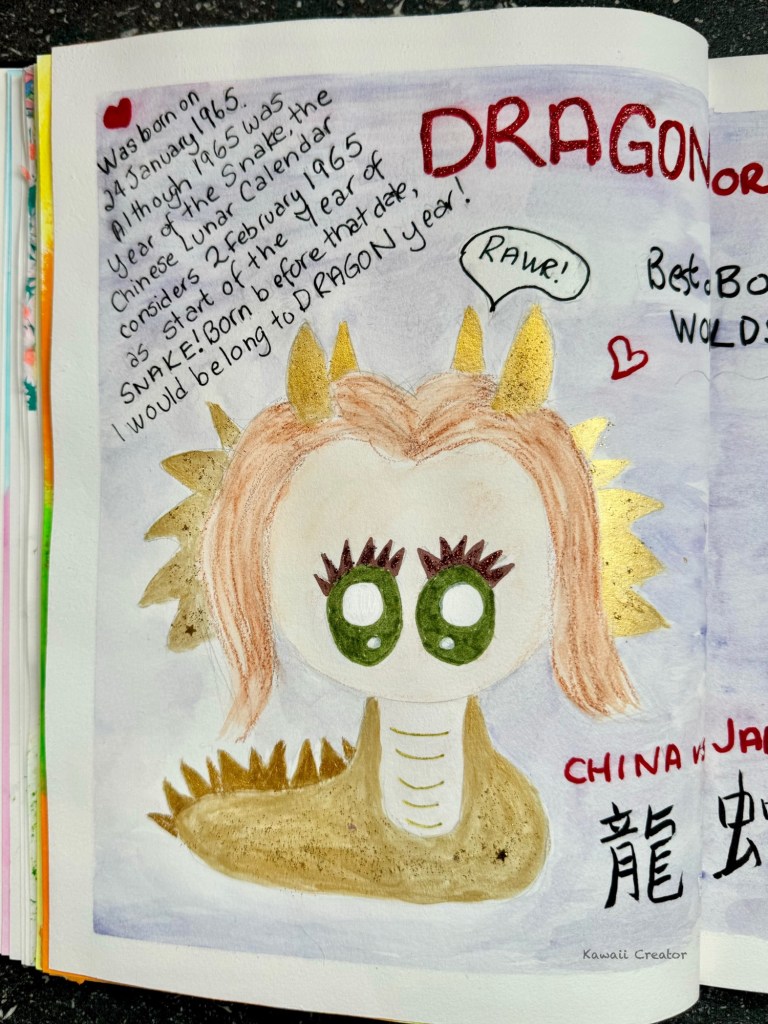 Was born on
24 January 1965.
Although 1965 was
Year of the Snake, the
Chinese Lunar Calendar
considers 2 February 1965
as start of the Year of
SNAKE! Born before that date,
I would belong to DRAGON year!
DRAGON OR
RAWR!
Best. BO
WORLDS
CHINA vs JAP
龍
Kawaii Creator